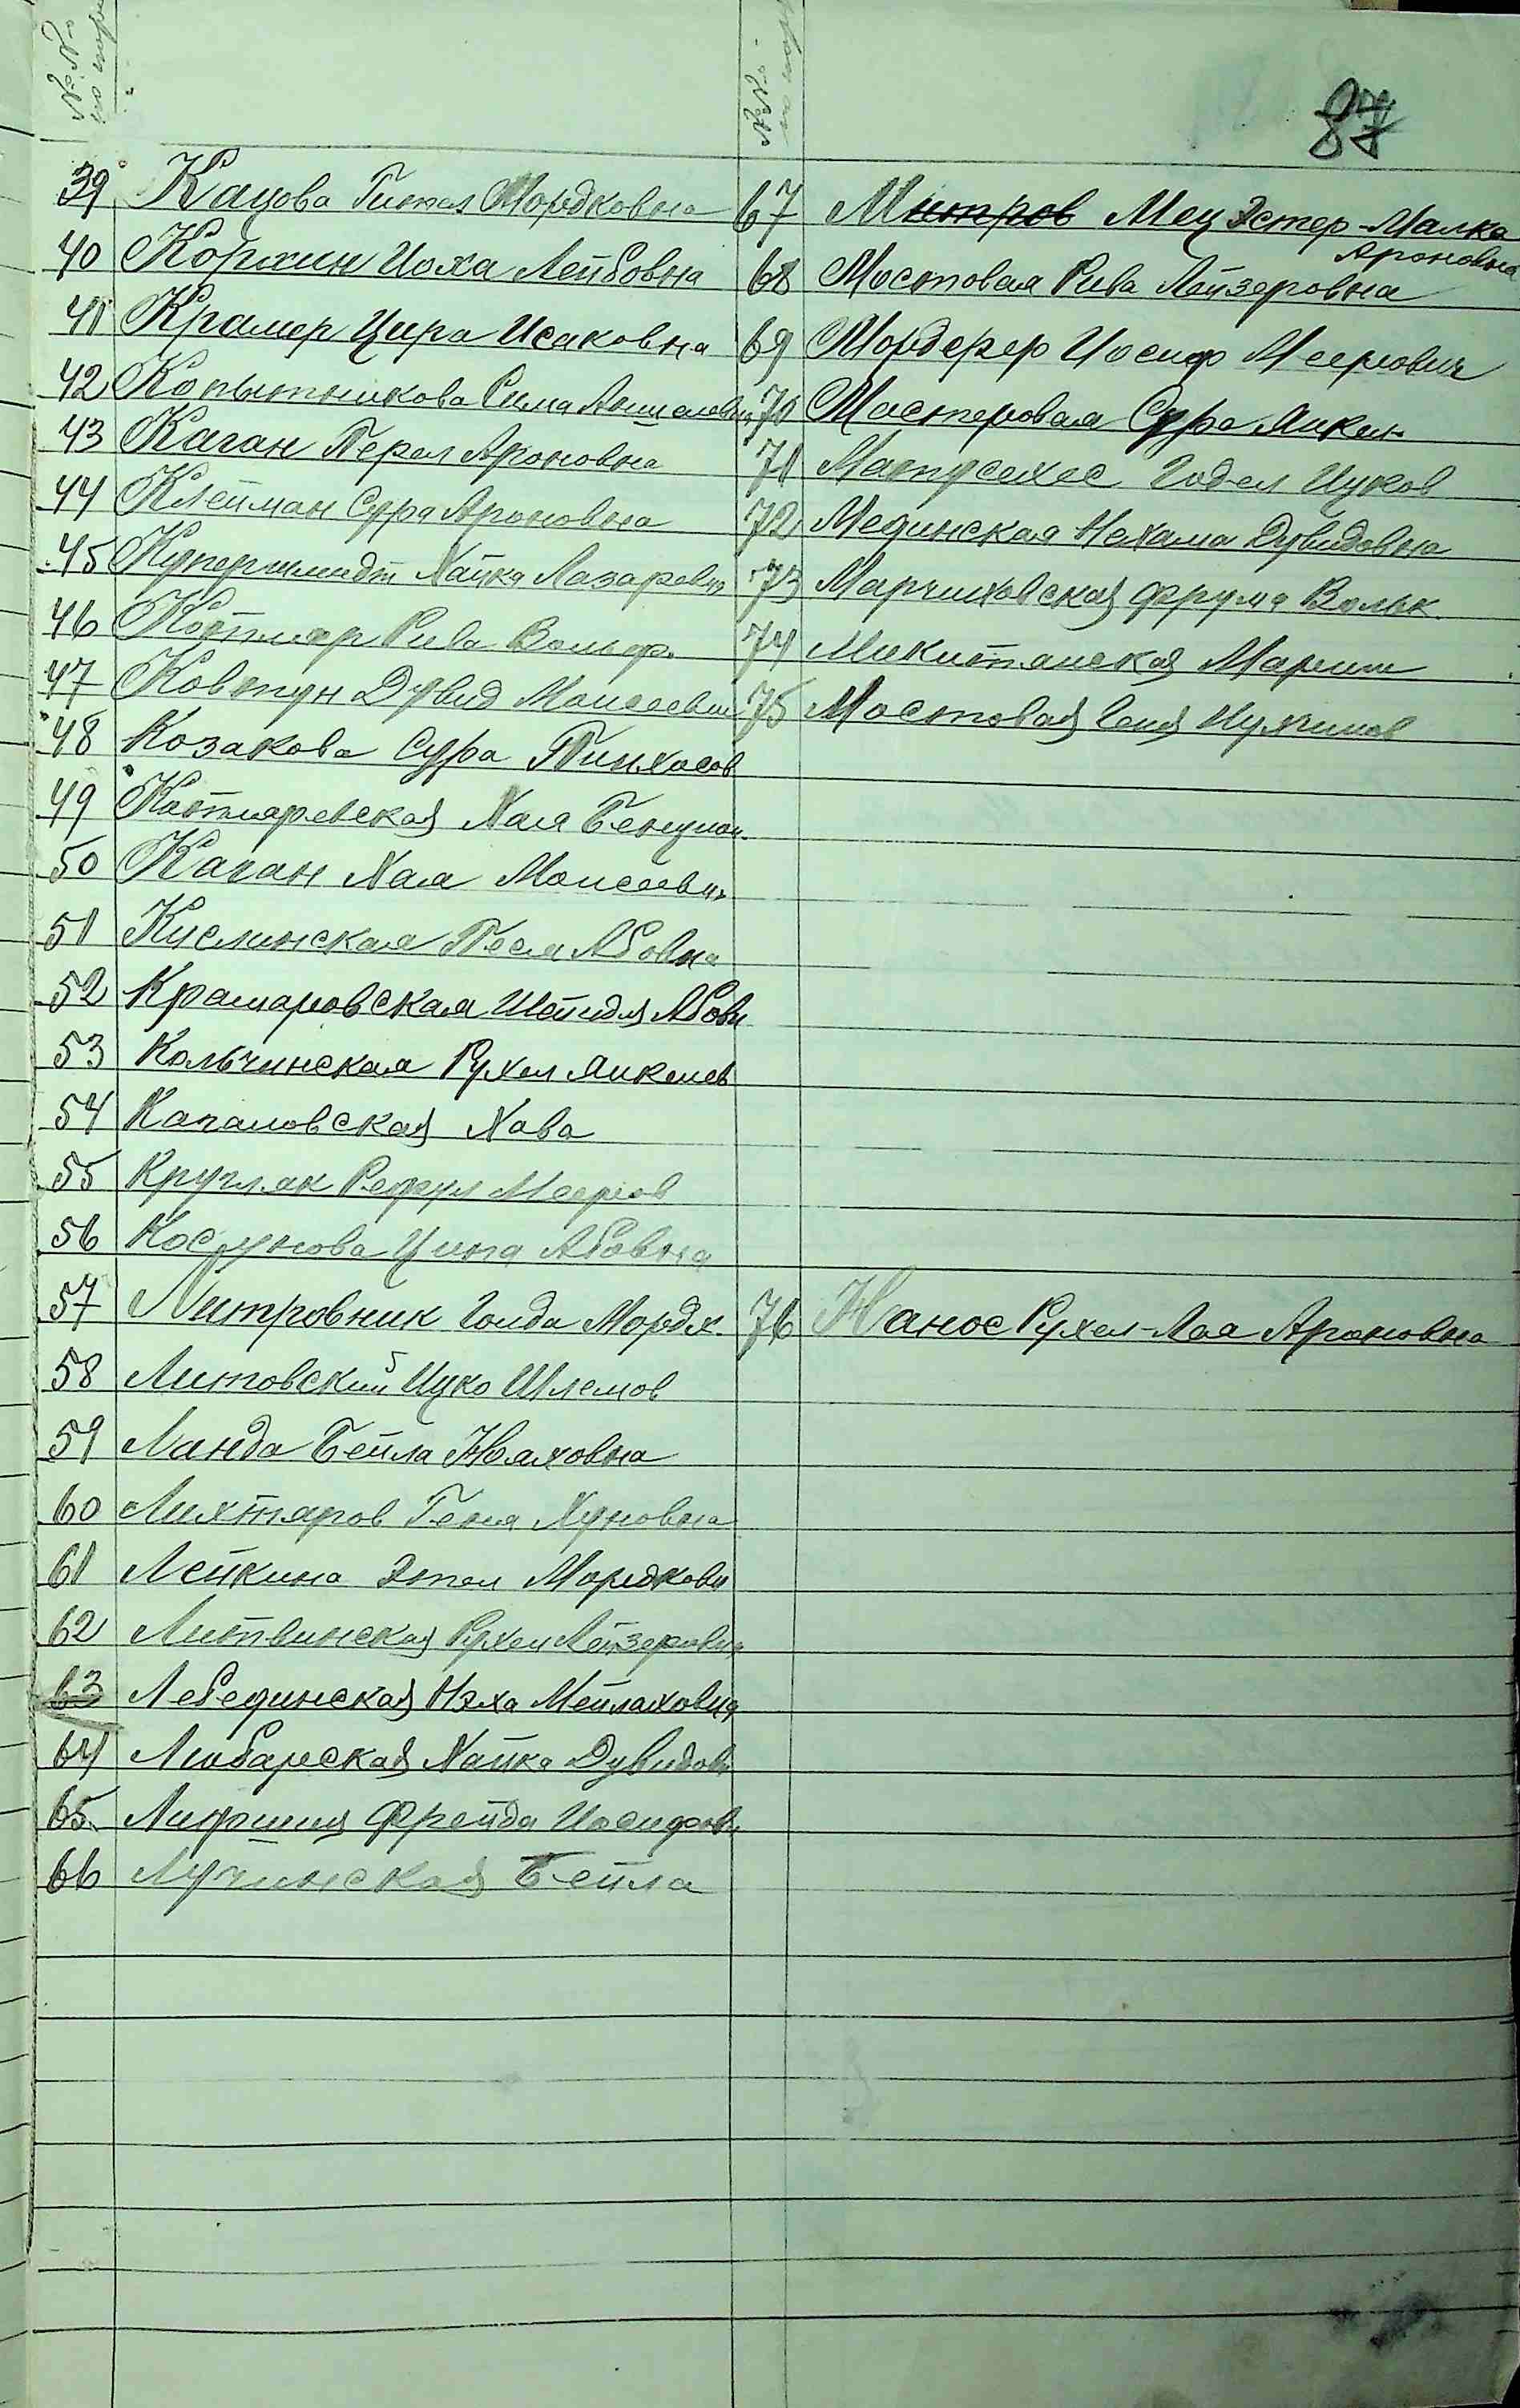 87
39 Кацова Гитля Мордковна
40 Коржин Иоха Лейбовна
41 Крамер Цира Исаковна
42 Копытникова Рима Аншелевн
43 Каган Перел Ароновна
44 Клейман Сура Ароновна
45 Купершмидт Хайка Лазаревн
46 Котляр Рива Вольф.
47 Ковтун Дувид Моисеевич
48 Козакова Сура Пинхасов
49 Котляревская Хая Бенцион.
50 Каган Хая Моисеевн
51 Кислинская Песя Абовна
52 Крамаровская Шейндля Абовн
53 Кольчинская Рухел Янкелев
54 Капаловская Хава
55 Кругляк Рефул Мееров
56 Косунова Цина Абовна
57 Литровник Голда Мордк.
58 Литовский Ицко Шлемов
59 Ланда Бейла Ноаховна
60 Лихтяров Геня Хуновна
61 Лейкина Этел Мордковн
62 Литвинская Рухел Лейзеровна
63 Лебединская Нэха Мейлаховна
64 Любарская Хайка Дувидовн
65 Лифшиц Фрейда Иосифовн
66 Лучинская Бейла
67 Митров Мец Эстер-Малка
Ароновна
68 Мостовая Рива Лейзеровна
69 Мордерер Иосиф Меерович
70 Мастеровая Сура Янкел
71 Матусехес Годел Ицков
72 Мединская Нехама Дувидовна
73 Марчиховская Фрума Вольк.
74 Микитянская Мариим
75 Мостовая Геня Нухимов
76 Нанос Рухел-Лая Ароновна